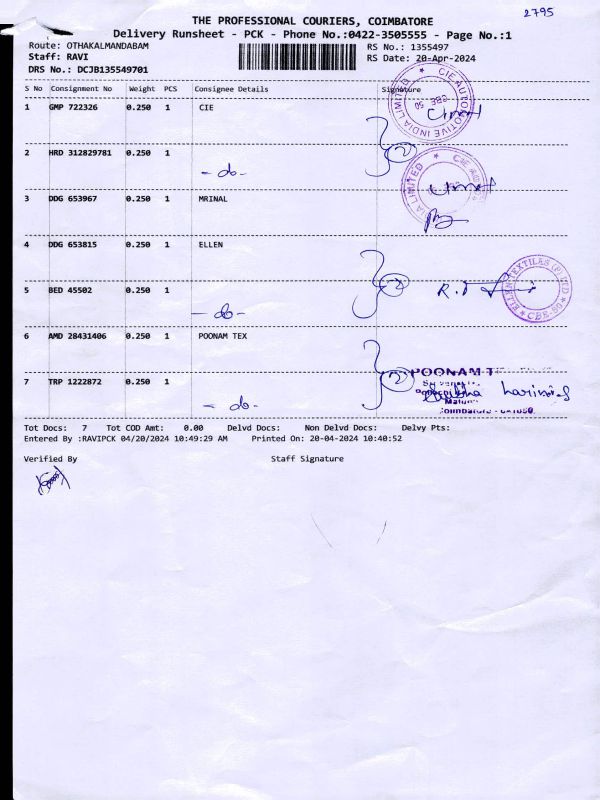 2795
THE PROFESSIONAL COURIERS, COIMBATORE
Delivery Runsheet - PCK - Phone No.:0422-3505555 - Page No.:1
Route: OTHAKALMANDABAM
RS No.: 1355497
Staff: RAVI
RS Date: 20-Apr-2024
DRS No.: DCJB135549701
S No Consignment No Weight PCS Consignee Details Signature
1 GMP 722326 0.250 1 CIE
CIE AUTOMOTIVE INDIA LIMITED
CBE 50
2 HRD 312829781 0.250 1 - do -
2
3 DDG 653967 0.250 1 MRINAL
4 DDG 653815 0.250 1 ELLEN
5 BED 45502 0.250 1 - do -
2
ELLEN TEXTILES (P) LTD
CBE-50
6 AMD 28431406 0.250 1 POONAM TEX
7 TRP 1222872 0.250 1 - do -
2
POONAM T
Tot Docs: 7 Tot COD Amt: 0.00 Delvd Docs: Non Delvd Docs: Delvy Pts:
Entered By :RAVIPCK 04/20/2024 10:49:29 AM Printed On: 20-04-2024 10:40:52
Verified By Staff Signature